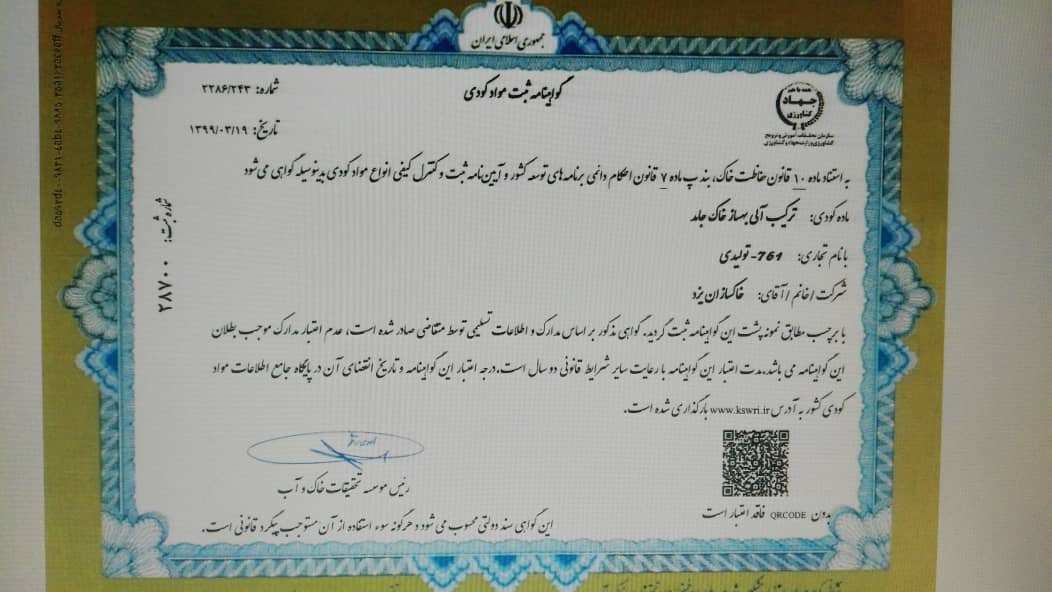 جمهوری اسلامی ایران
گواهینامه ثبت مواد کودی
شماره: ۲۲۸۶/۲۴۳
تاریخ: ۱۳۹۹/۰۳/۱۹
همه با هم
جهاد
کشاورزی
سازمان تحقیقات، آموزش و ترویج
کشاورزی وزارت جهاد کشاورزی
به استناد ماده ۱۰ قانون حفاظت خاک، بند پ ماده ۷ قانون احکام دائمی برنامه های توسعه کشور و آیین نامه ثبت و کنترل کیفی انواع مواد کودی بدینوسیله گواهی می شود
ماده کودی: ترکیب آلی بهساز خاک جامد
با نام تجاری: 761- تولیدی
شرکت / خانم / آقای: خاکسازان یزد
شماره ثبت: ۲۸۷۰۰
با برچسب مطابق نمونه پشت این گواهینامه ثبت گردید. گواهی مذکور بر اساس مدارک و اطلاعات تسلیمی توسط متقاضی صادر شده است، عدم اعتبار مدارک موجب بطلان
این گواهینامه می باشد. مدت اعتبار این گواهینامه با رعایت سایر شرایط قانونی دو سال است. درجه اعتبار این گواهینامه و تاریخ انقضای آن در پایگاه جامع اطلاعات مواد
کودی کشور به آدرس www.kswri.ir بارگذاری شده است.
رئیس موسسه تحقیقات خاک و آب
بدون QRCODE فاقد اعتبار است
این گواهی سند دولتی محسوب می شود و هرگونه سوء استفاده از آن مستوجب پیگرد قانونی است.